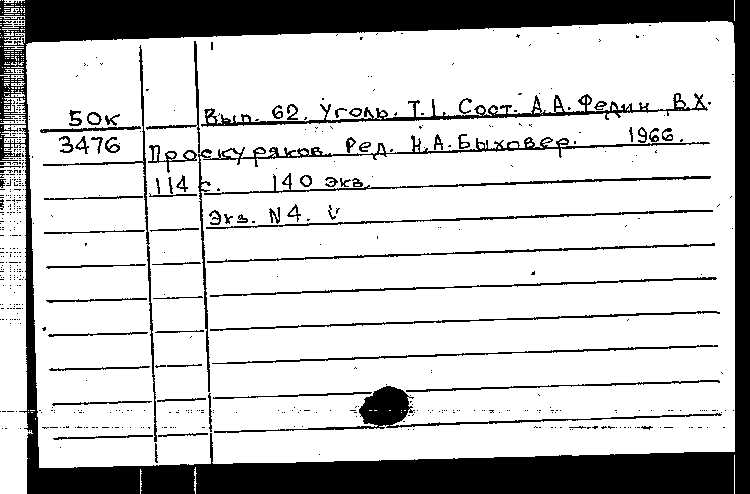 50к Вып. 62. Уголь. Т.1. Сост. А.А. Федин В.Х.
3476 Проскуряков. Ред. Н.А. Быховер. 1966.
114 с. 140 экз.
Экз. N4. V